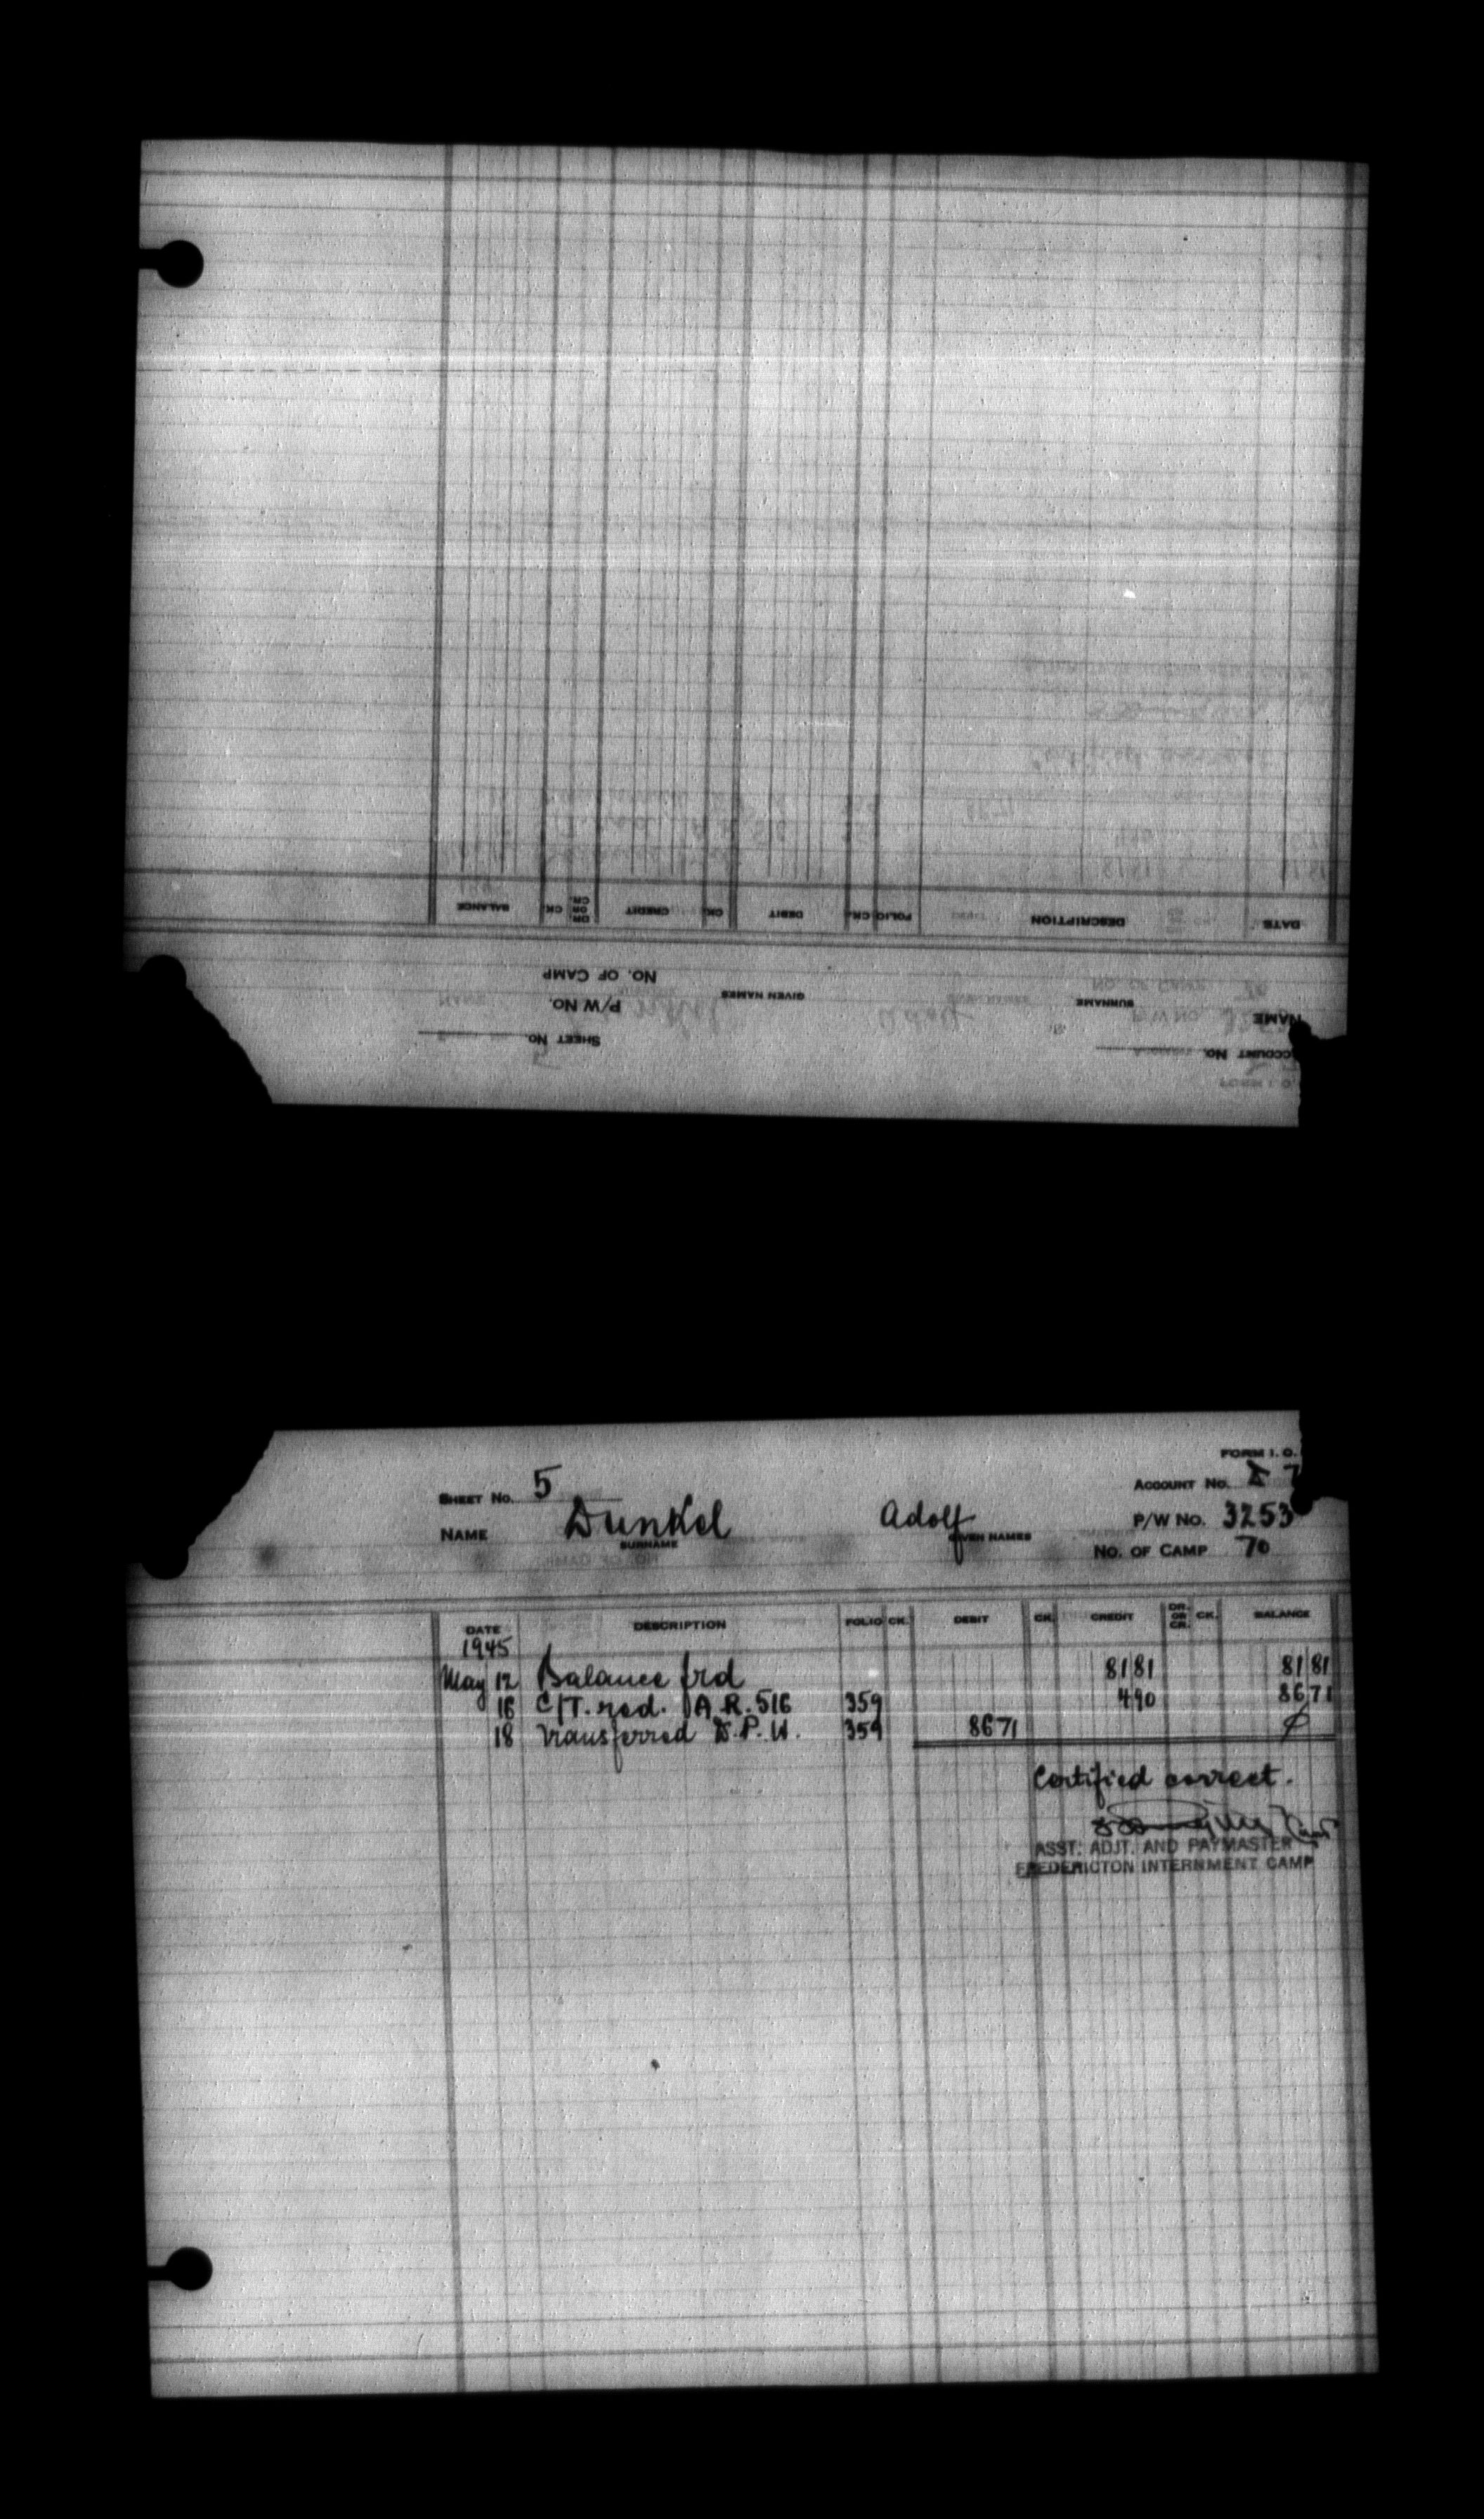 DATE DESCRIPTION FOLIO CK. DEBIT CK. CREDIT DR. OR CR. CK. BALANCE
NO. OF CAMP
P/W NO. GIVEN NAMES SURNAME NAME
SHEET NO. ACCOUNT NO.
FORM I. O.
SHEET NO. 5 ACCOUNT NO. 7
NAME Dunkel Adolf P/W NO. 3253
SURNAME GIVEN NAMES
NO. OF CAMP 70
DATE DESCRIPTION FOLIO CK. DEBIT CK. CREDIT DR. OR CR. CK. BALANCE
1945
May 12 Balance frd 81 81 81 81
16 C/T. red. A.R. 516 359 4 90 86 71
18 Transferred D.P.W. 359 86 71 ø
Certified correct.
ASST. ADJT. AND PAYMASTER
FREDERICTON INTERNMENT CAMP